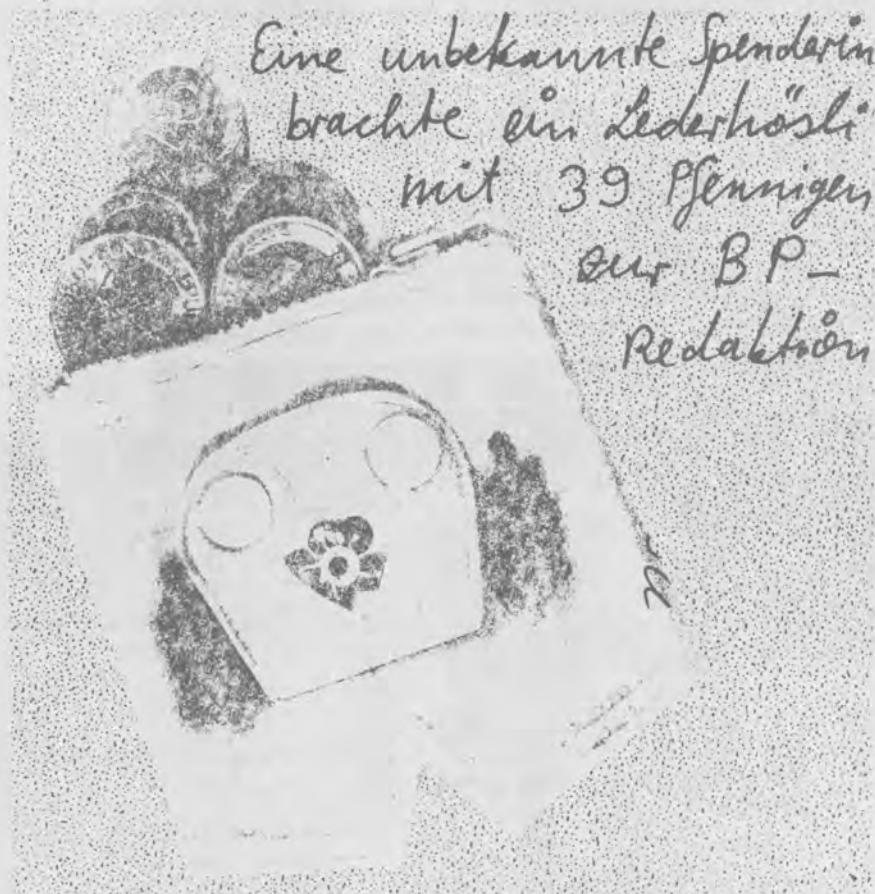 Eine unbekannte Spenderin
brachte ein Lederhösli
mit 39 Pfennigen
zur BP-
Redaktion